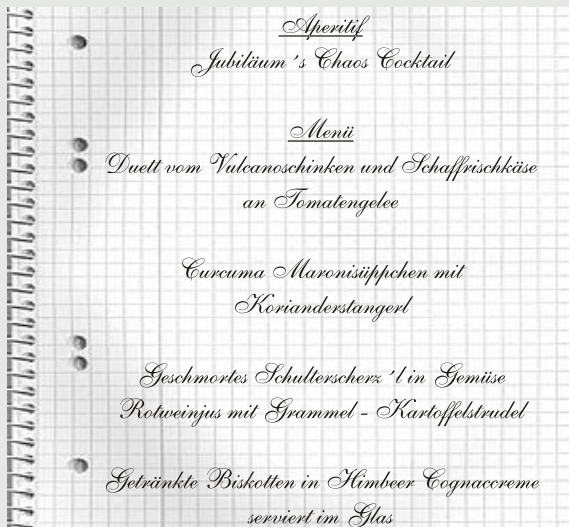 Aperitif
Jubiläum 's Chaos Cocktail
Menü
Duett vom Vulcanoschinken und Schaffrischkäse
an Tomatengelee
Curcuma Maronisüppchen mit
Korianderstangerl
Geschmortes Schulterscherz 'l in Gemüse
Rotweinjus mit Grammel - Kartoffelstrudel
Getränkte Biskotten in Himbeer Cognaccreme
serviert im Glas